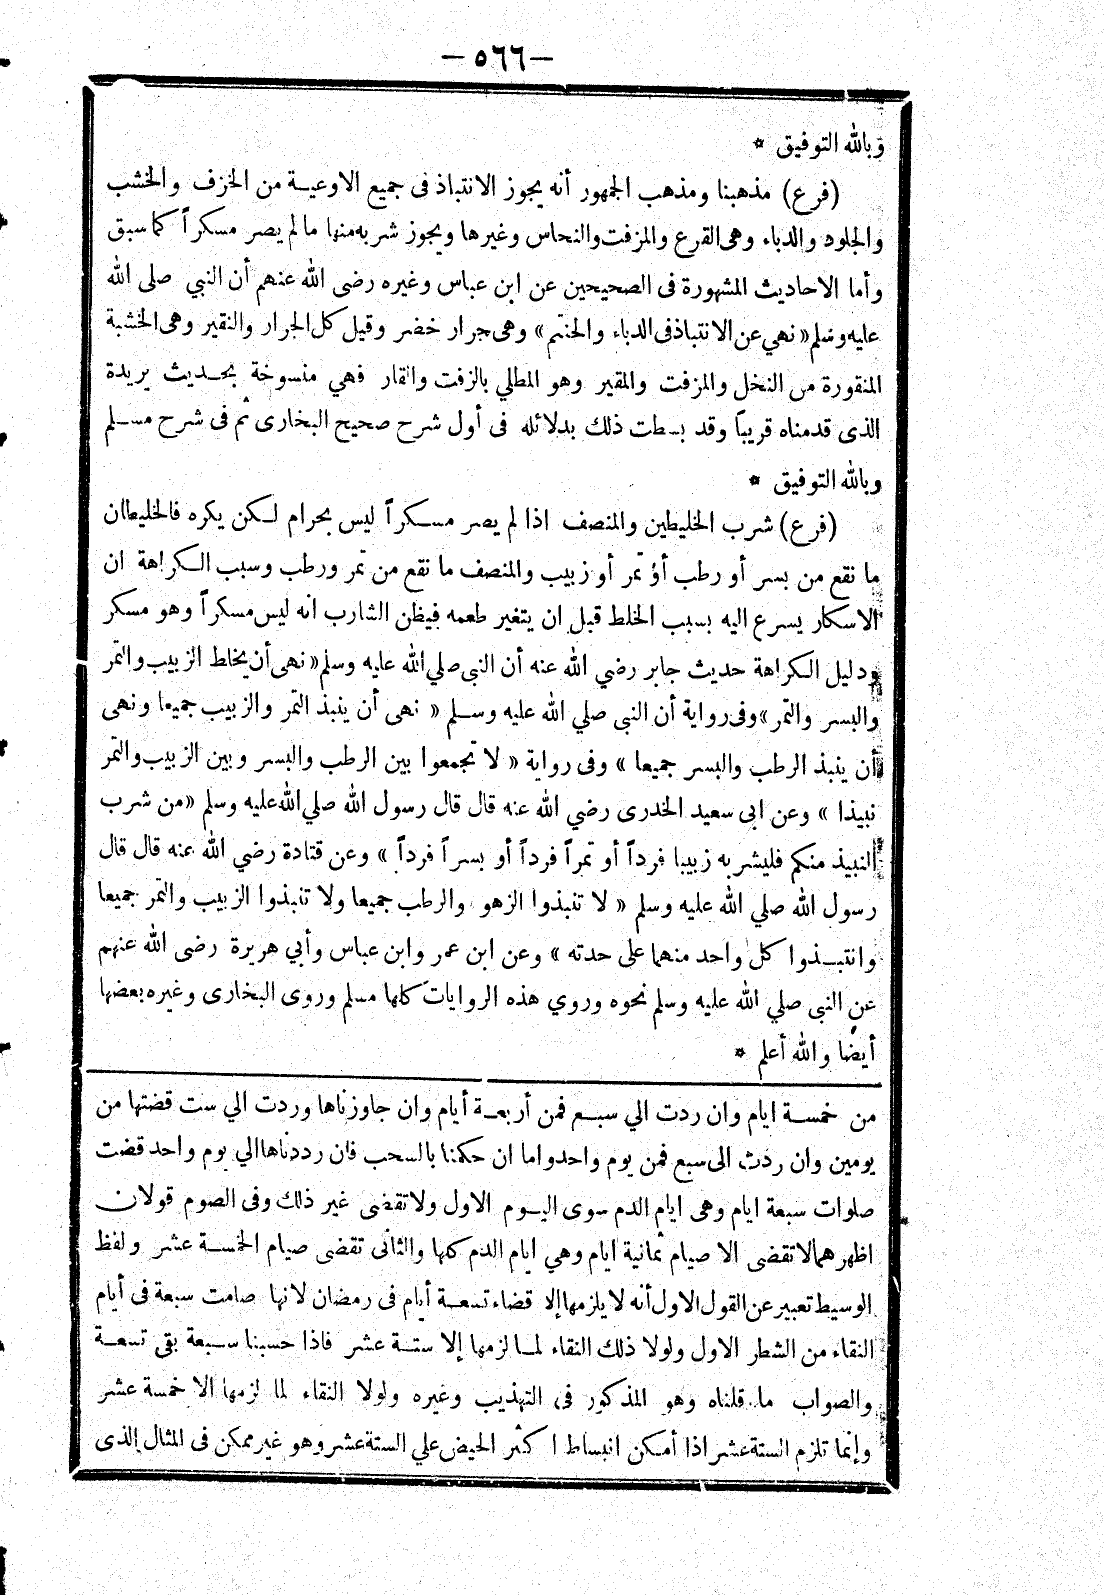 — ٥٦٦ —
وبالله التوفيق *
(فرع) مذهبنا ومذهب الجمهور أنه يجوز الانتباذ فى جميع الاوعية من الخزف والخشب
والجلود والدباء وهى القرع والمزفت والنحاس وغيرها ويجوز شربه منها ما لم يصر مسكراً كما سبق
وأما الاحاديث المشهورة فى الصحيحين عن ابن عباس وغيره رضى الله عنهم أن النبي صلى الله
عليه وسلم « نهي عن الانتباذ فى الدباء والحنتم » وهى جرار خضر وقيل كل الجرار والنقير وهى الخشبة
المنقورة من النخل والمزفت والمقير وهو المطلي بالزفت والقار فهي منسوخة بحديث بريدة
الذى قدمناه قريباً وقد بسطت ذلك بدلائله فى أول شرح صحيح البخارى ثم فى شرح مسلم
وبالله التوفيق *
(فرع) شرب الخليطين والمنصف اذا لم يصر مسكراً ليس بحرام لكن يكره فالخليطان
ما نقع من بسر أو رطب أو تمر أو زبيب والمنصف ما نقع من تمر ورطب وسبب الكراهة ان
الاسكار يسرع اليه بسبب الخلط قبل ان يتغير طعمه فيظن الشارب انه ليس مسكراً وهو مسكر
ودليل الكراهة حديث جابر رضي الله عنه أن النبى صلي الله عليه وسلم « نهى أن يخلط الزبيب والتمر
والبسر والتمر » وفى رواية أن النبى صلي الله عليه وسلم « نهى أن ينبذ التمر والزبيب جميعا ونهى
أن ينبذ الرطب والبسر جميعا » وفى رواية « لا تجمعوا بين الرطب والبسر وبين الزبيب والتمر
نبيذا » وعن ابى سعيد الخدرى رضي الله عنه قال قال رسول الله صلي الله عليه وسلم « من شرب
النبيذ منكم فليشربه زبيبا فرداً أو تمراً فرداً أو بسراً فرداً » وعن قتادة رضي الله عنه قال قال
رسول الله صلي الله عليه وسلم « لا تنبذوا الزهو والرطب جميعا ولا تنبذوا الزبيب والتمر جميعا
وانتبذوا كل واحد منهما على حدته » وعن ابن عمر وابن عباس وأبي هريرة رضى الله عنهم
عن النبى صلي الله عليه وسلم نحوه وروي هذه الروايات كلها مسلم وروى البخارى وغيره بعضها
أيضا والله أعلم *
من خمسة ايام وان ردت الي سبع فمن أربعة أيام وان جاوزناها وردت الي ست قضتها من
يومين وان ردت الى سبع فمن يوم واحد واما ان حكمنا بالسحب فان رددناها الي يوم واحد قضت
صلوات سبعة ايام وهى ايام الدم سوى اليوم الاول ولا تقضى غير ذلك وفى الصوم قولان
اظهرهما لا تقضى الا صيام ثمانية ايام وهي ايام الدم كلها والثانى تقضى صيام الخمسة عشر ولفظ
الوسيط تعبير عن القول الاول أنه لا يلزمها إلا قضاء تسعة أيام فى رمضان لانها صامت سبعة فى أيام
النقاء من الشطر الاول ولولا ذلك النقاء لما لزمها إلا ستة عشر فاذا حسبنا سبعة بقى تسعة
والصواب ما قلناه وهو المذكور فى التهذيب وغيره ولولا النقاء لما لزمها الا خمسة عشر
وإنما تلزم الستة عشر اذا أمكن انبساط اكثر الحيض علي الستة عشر وهو غير ممكن فى المثال الذى